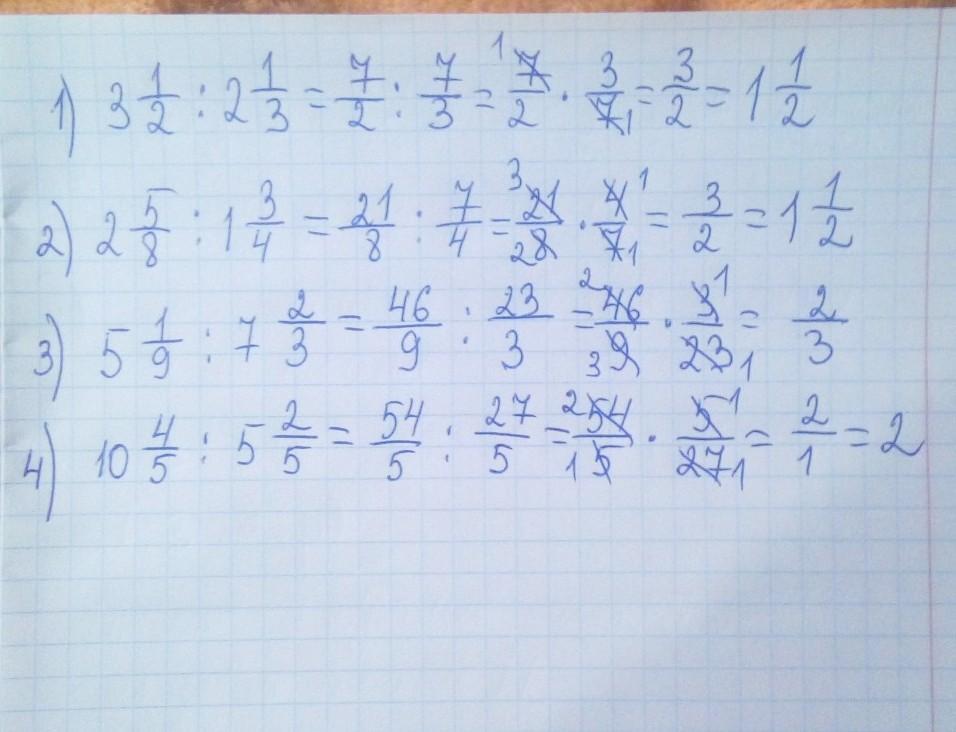 1) 3 1/2 : 2 1/3 = 7/2 : 7/3 = 7/2 · 3/7 = 3/2 = 1 1/2
2) 2 5/8 : 1 3/4 = 21/8 : 7/4 = 21/8 · 4/7 = 3/2 = 1 1/2
3) 5 1/9 : 7 2/3 = 46/9 : 23/3 = 46/9 · 3/23 = 2/3
4) 10 4/5 : 5 2/5 = 54/5 : 27/5 = 54/5 · 5/27 = 2/1 = 2